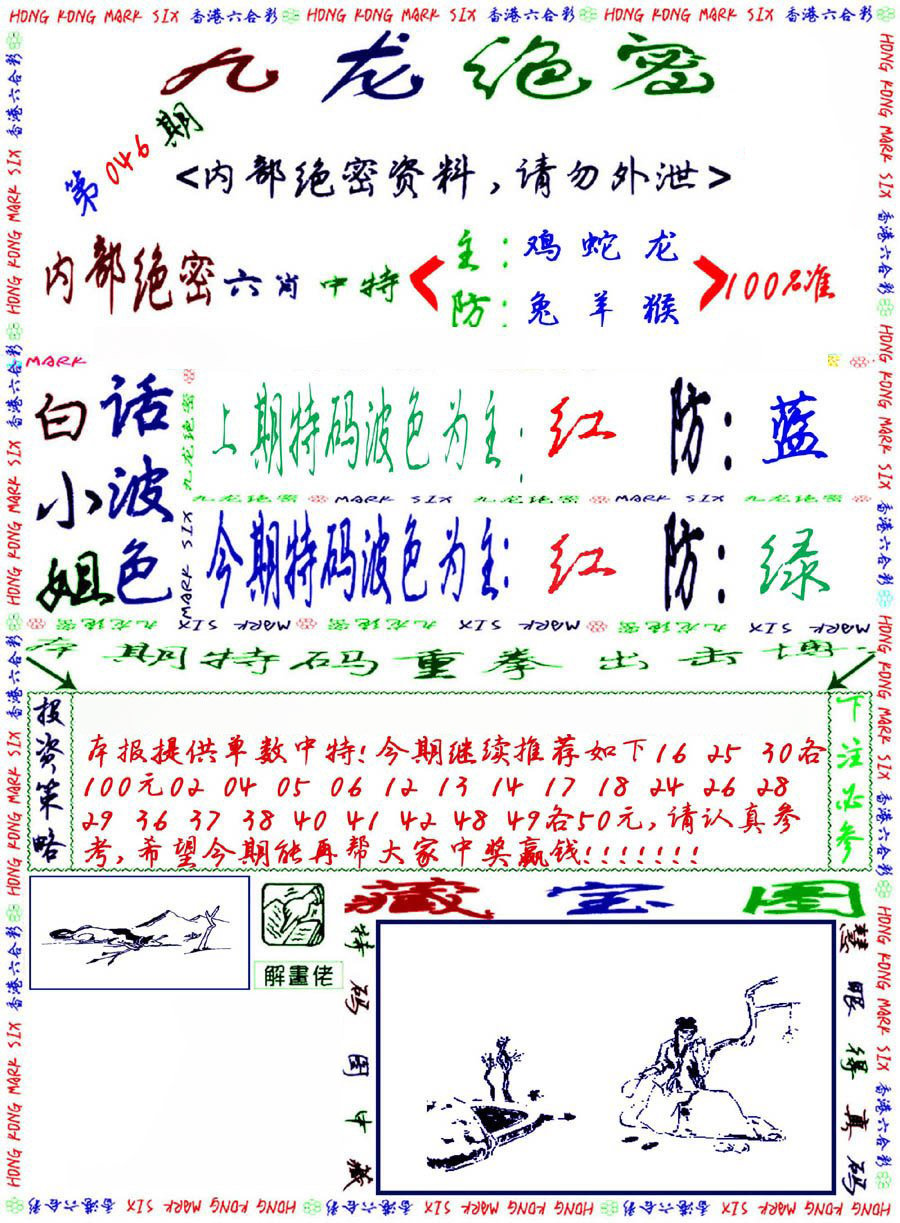 HONG KONG MARK SIX 香港六合彩 HONG KONG MARK SIX 香港六合彩 HONG KONG MARK SIX 香港六合彩
九龙绝密
第046期
<内部绝密资料,请勿外泄>
内部绝密六肖中特
主:鸡蛇龙
防:兔羊猴
100%准
MARK
白小姐
话波色
上期特码波色为主:红 防:蓝
九龙绝密 MARK SIX 九龙绝密 MARK SIX 九龙绝密
今期特码波色为主:红 防:绿
九龙绝密 MARK SIX 九龙绝密 MARK SIX 九龙绝密 MARK SIX
本期特码重拳出击博
投资策略
本报提供单数中特!今期继续推荐如下16 25 30各
100元02 04 05 06 12 13 14 17 18 24 26 28
29 36 37 38 40 41 42 48 49各50元,请认真参
考,希望今期能再帮大家中奖赢钱!!!!!!!
下注必参
解畫佬
藏宝图
特码图中藏
慧眼得真码
HONG KONG MARK SIX 香港六合彩 HONG KONG MARK SIX 香港六合彩 HONG KONG MARK SIX 香港六合彩